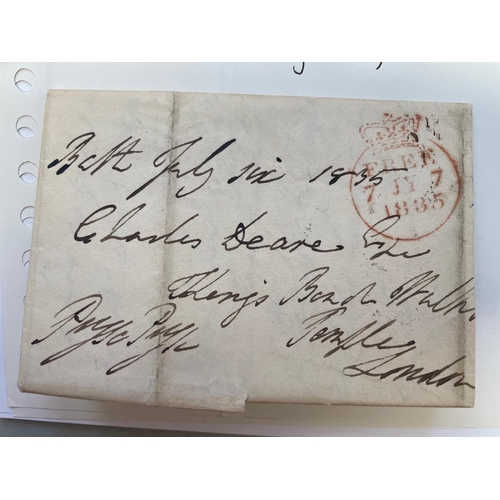 Bath July six 1835
Charles Deare Esqr
Kings Bench Walk
Temple
London
Pryse Pryse
FREE
7 JY 7
1835